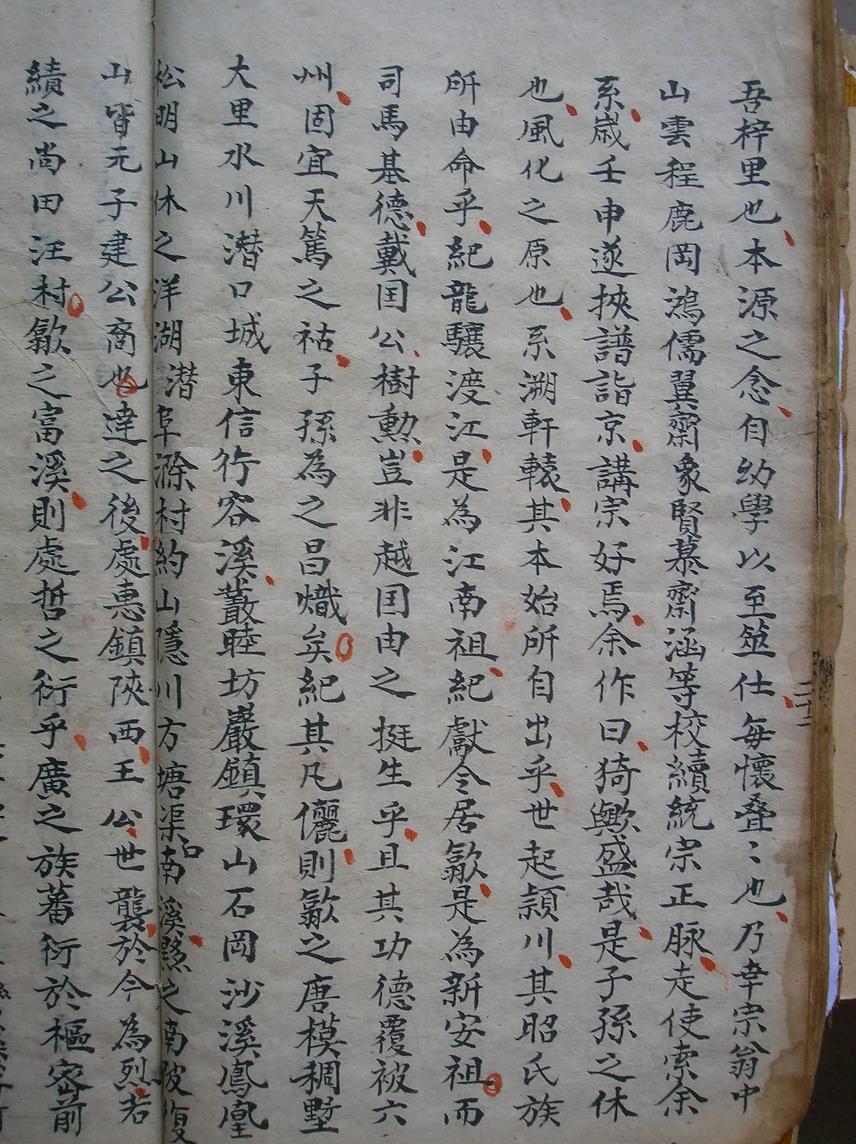 吾梓里也本源之念自幼學以至筮仕每懷叠〻也乃幸宗翁中
山雲程鹿岡鴻儒翼齋象賢慕齋涵等校續統宗正脉走使索余
系歲壬申遂挾譜詣京講宗好焉余作曰猗歟盛哉是子孫之休
也風化之原也系溯軒轅其本始所自出乎世起頴川其昭氏族
所由命乎紀龍驤渡江是為江南祖紀獻令居歙是為新安祖而
司馬基德戴囯公樹勲豈非越囯由之挺生乎且其功德覆被六
州固宜天篤之祜子孫為之昌熾矣紀其凡儷則歙之唐模稠墅
大里水川潛口城東信行容溪叢睦坊巖鎮環山石岡沙溪鳳凰
松明山休之洋湖潛阜滁村約山隱川方塘渠口南溪黟之南陂復
山皆元子建公裔也達之後處惠鎮陝西王公世襲於今為烈若
績之尚田汪村歙之富溪則處哲之衍乎廣之族蕃衍於樞密前